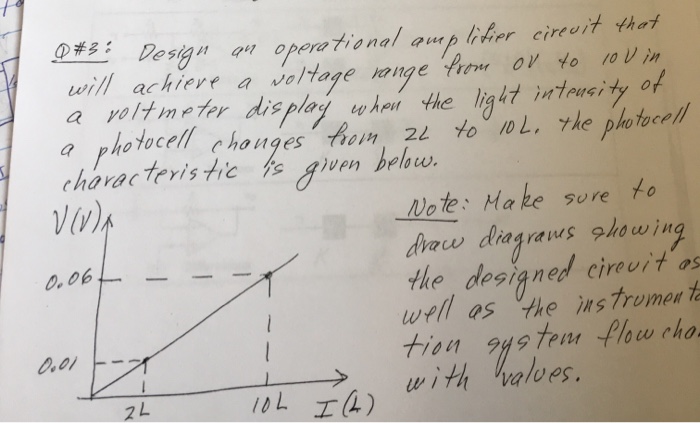 Q#3: Design an operational amplifier circuit that
will achieve a voltage range from 0V to 10V in
a voltmeter display when the light intensity of
a photocell changes from 2L to 10L. the photocell
characteristic is given below.
V(V)
0.06
0.01
2L
10L
I(L)
Note: Make sure to
draw diagrams showing
the designed circuit as
well as the instrumenta
tion system flow cha
with values.